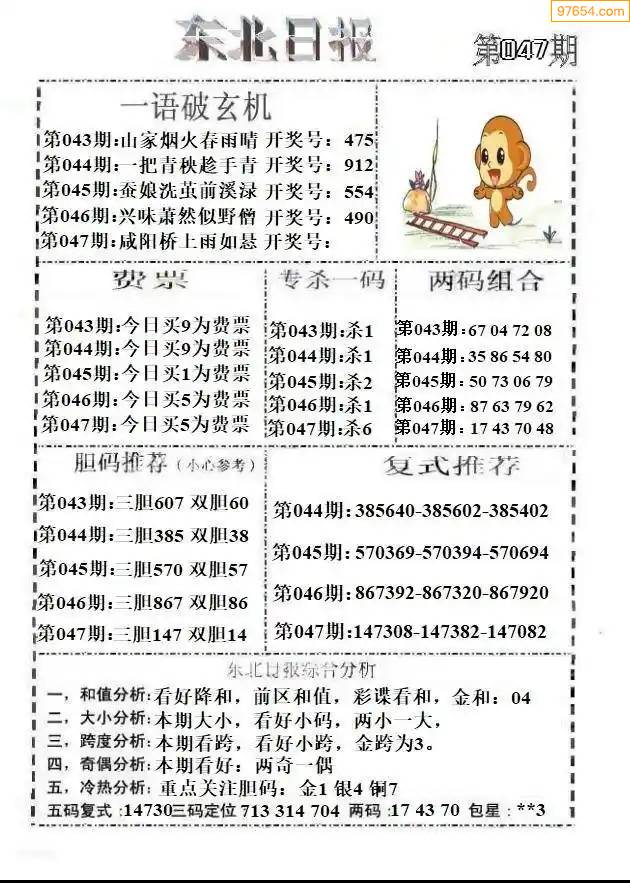 97654.com
东北日报 第047期
一语破玄机
第043期:山家烟火春雨晴 开奖号: 475
第044期:一把青秧趁手青 开奖号: 912
第045期:蚕娘洗茧前溪渌 开奖号: 554
第046期:兴味萧然似野僧 开奖号: 490
第047期:咸阳桥上雨如悬 开奖号:
费票
第043期:今日买9为费票
第044期:今日买9为费票
第045期:今日买1为费票
第046期:今日买5为费票
第047期:今日买5为费票
专杀一码
第043期:杀1
第044期:杀1
第045期:杀2
第046期:杀1
第047期:杀6
两码组合
第043期:67 04 72 08
第044期:35 86 54 80
第045期:50 73 06 79
第046期:87 63 79 62
第047期:17 43 70 48
胆码推荐(小心参考)
第043期:三胆607 双胆60
第044期:三胆385 双胆38
第045期:三胆570 双胆57
第046期:三胆867 双胆86
第047期:三胆147 双胆14
复式推荐
第044期:385640-385602-385402
第045期:570369-570394-570694
第046期:867392-867320-867920
第047期:147308-147382-147082
东北日报综合分析
一,和值分析:看好降和,前区和值,彩谍看和,金和:04
二、大小分析:本期大小,看好小码,两小一大,
三,跨度分析:本期看跨,看好小跨,金跨为3。
四,奇偶分析:本期看好:两奇一偶
五,冷热分析:重点关注胆码:金1 银4 铜7
五码复式:14730三码定位 713 314 704 两码:17 43 70 包星:**3